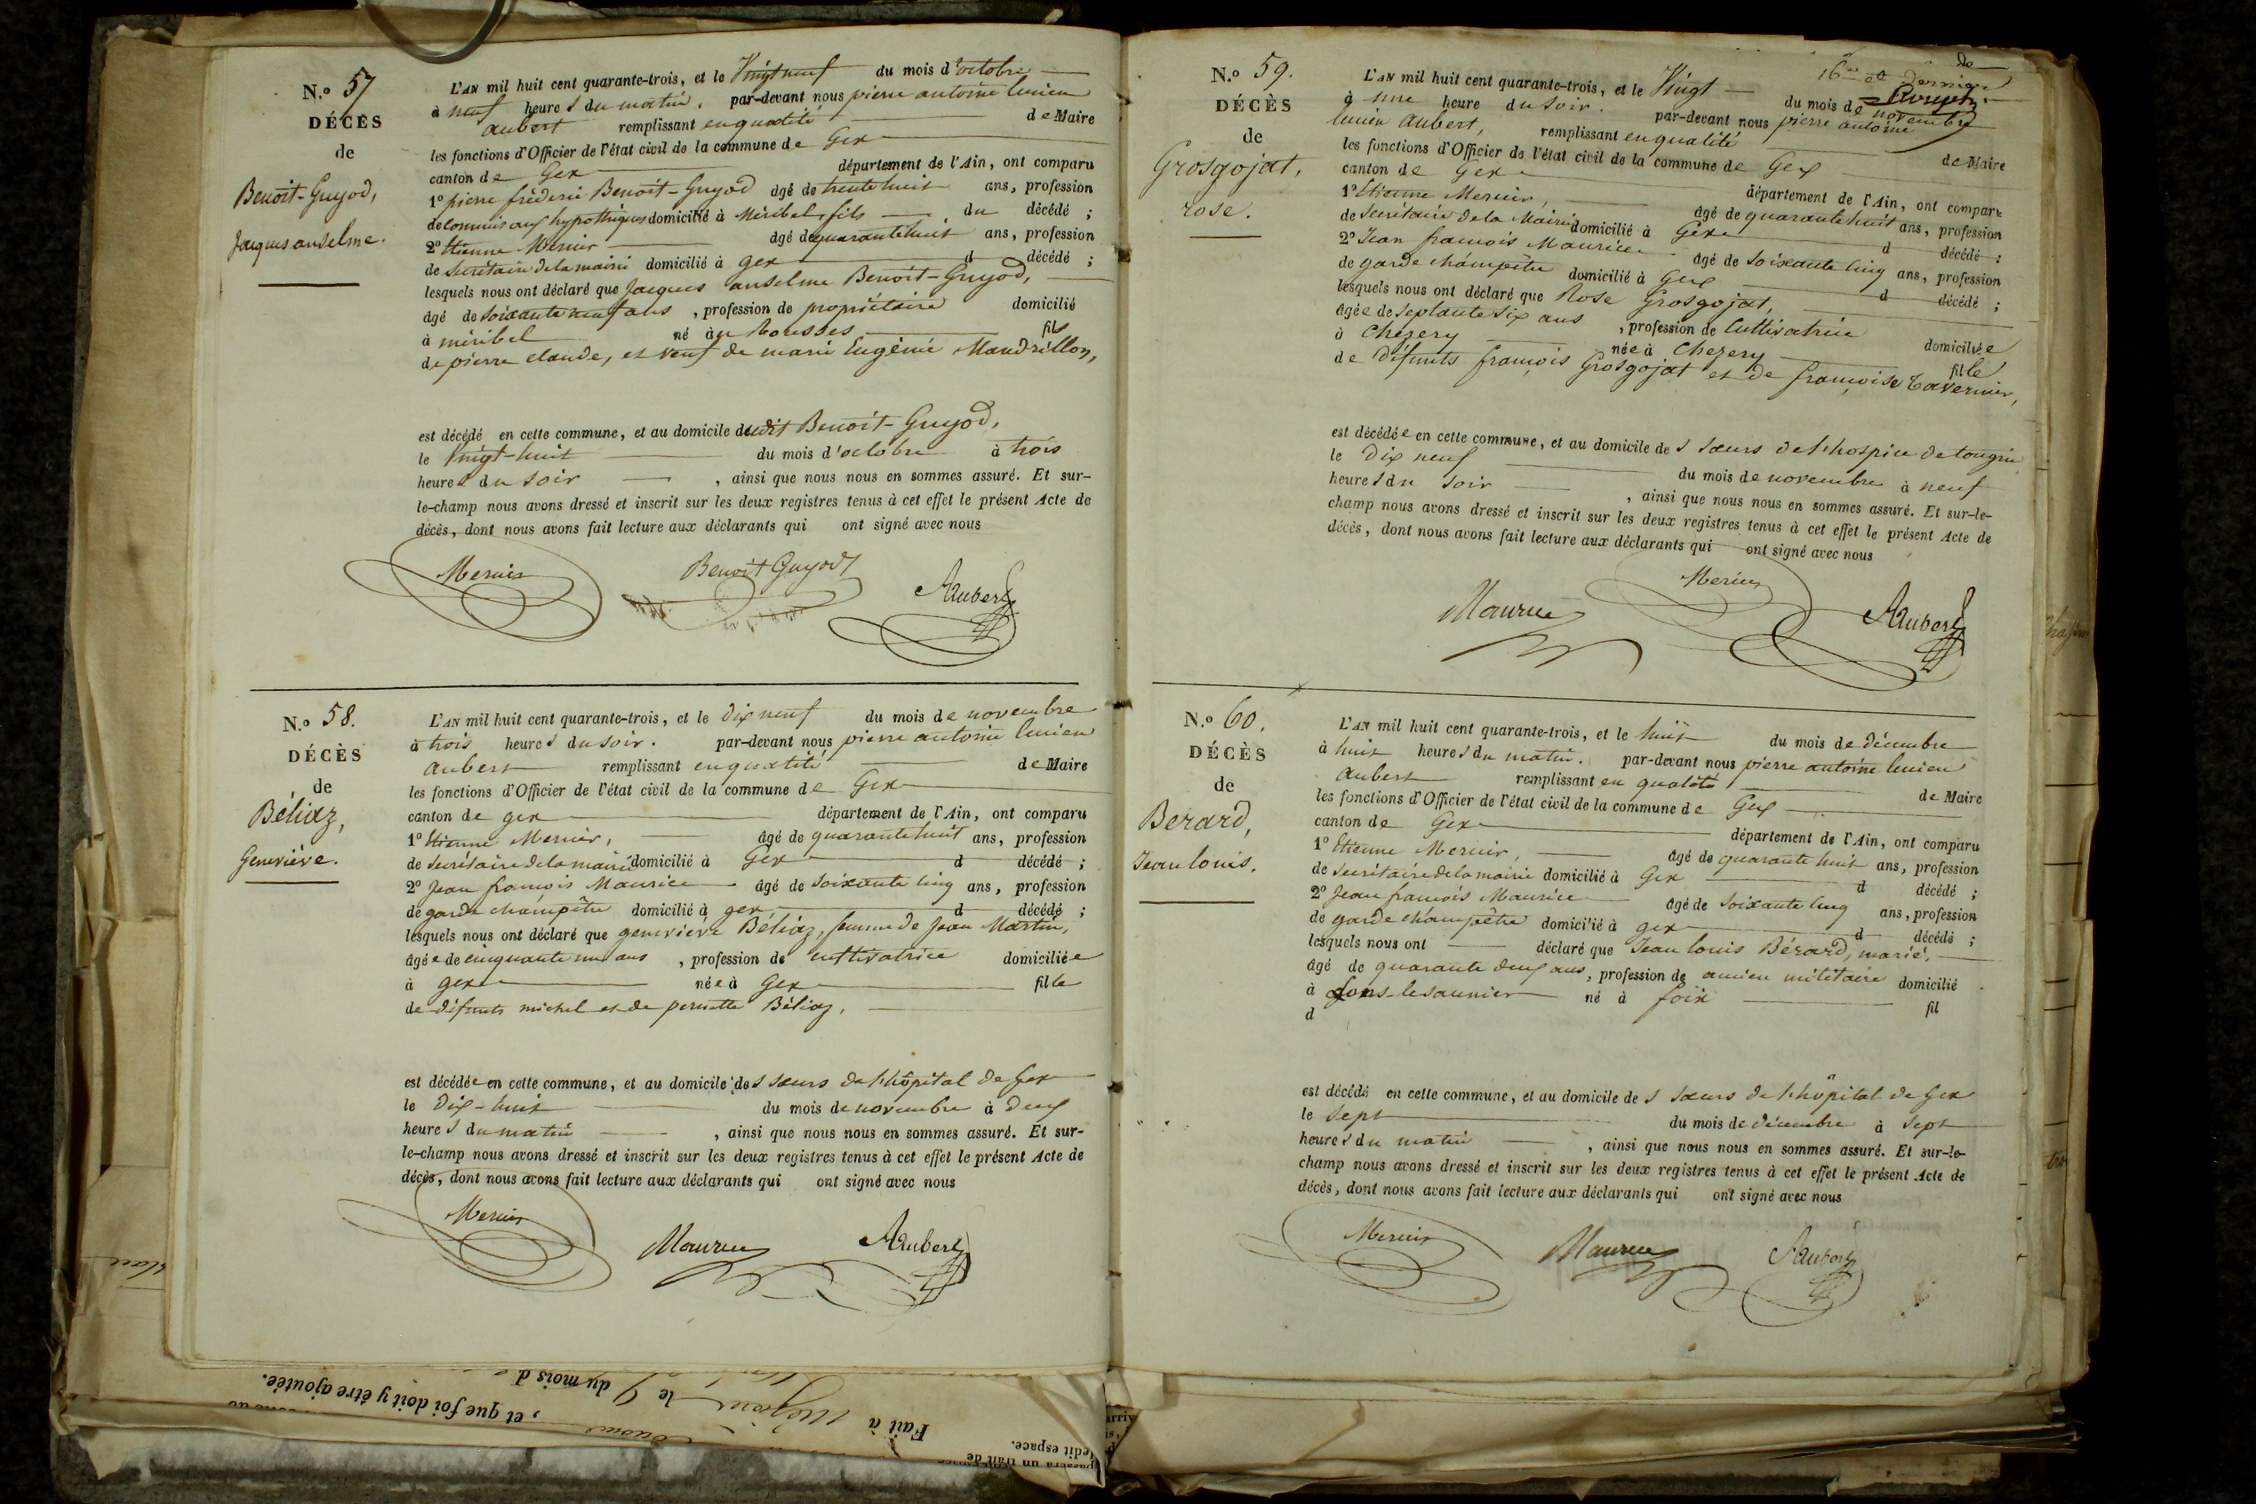 N.º 57
DÉCÈS
de
Benoit-Guyod,
Jacques anselme.
L'AN mil huit cent quarante-trois, et le Vingt neuf du mois d'octobre
à neuf heures du matin, par-devant nous pierre antoine lucien
aubert remplissant en qualité de Maire
les fonctions d'Officier de l'état civil de la commune de Gex
canton de Gex département de l'Ain, ont comparu
1º pierre fréderic Benoit-Guyod âgé de trente huit ans, profession
de commis aux hypothèques domicilié à Méribel, fils du décédé ;
2º Etienne Mercier âgé de quarante huit ans, profession
de Secrétaire de la mairie domicilié à gex d décédé ;
lesquels nous ont déclaré que Jacques anselme Benoit-Guyod,
âgé de soixante neuf ans , profession de propriétaire domicilié
à méribel né à Rousses fils
de pierre claude, et veuf de marie Eugénie Mandrillon,
est décédé en cette commune, et au domicile dudit Benoit-Guyod,
le vingt-huit du mois d'octobre à trois
heures du soir , ainsi que nous nous en sommes assuré. Et sur-
le-champ nous avons dressé et inscrit sur les deux registres tenus à cet effet le présent Acte de
décès, dont nous avons fait lecture aux déclarants qui ont signé avec nous
Mercier Benoit Guyod Aubert
N.º 58.
DÉCÈS
de
Béliaz,
Geneviève.
L'AN mil huit cent quarante-trois, et le dix neuf du mois de novembre
à trois heures du soir. par-devant nous pierre antoine lucien
aubert remplissant en qualité de Maire
les fonctions d'Officier de l'état civil de la commune de Gex
canton de gex département de l'Ain, ont comparu
1º Etienne Mercier, âgé de quarante huit ans, profession
de secrétaire de la mairie domicilié à Gex d décédé ;
2º Jean françois Maurice âgé de soixante cinq ans, profession
de garde champêtre domicilié à gex d décédé ;
lesquels nous ont déclaré que geneviève Béliaz, femme de Jean Martin,
âgée de cinquante un ans , profession de cultivatrice domiciliée
à gex née à Gex fille
de défunts michel et de pernette Béliaz,
est décédée en cette commune, et au domicile des sœurs de l'hôpital de Gex
le dix-huit du mois de novembre à deux
heures du matin , ainsi que nous nous en sommes assuré. Et sur-
le-champ nous avons dressé et inscrit sur les deux registres tenus à cet effet le présent Acte de
décès, dont nous avons fait lecture aux déclarants qui ont signé avec nous
Mercier Maurice Aubert
N.º 59.
DÉCÈS
de
Grosgojat,
rose.
L'AN mil huit cent quarante-trois, et le Vingt du mois de novembre
à une heure du soir. par-devant nous pierre antoine
lucien aubert, remplissant en qualité de Maire
les fonctions d'Officier de l'état civil de la commune de Gex
canton de Gex département de l'Ain, ont comparu
1º Etienne Mercier, âgé de quarante huit ans, profession
de Secrétaire de la Mairie domicilié à Gex d décédé ;
2º Jean françois Maurice âgé de soixante cinq ans, profession
de garde champêtre domicilié à Gex d décédé ;
lesquels nous ont déclaré que Rose Grosgojat,
âgée de septante six ans , profession de Cultivatrice domiciliée
à Chezery née à Chezery fille
de défunts françois Grosgojat et de françoise Tavernier,
est décédée en cette commune, et au domicile des sœurs de l'hospice de tougin
le dix neuf du mois de novembre à neuf
heures du soir , ainsi que nous nous en sommes assuré. Et sur-le-
champ nous avons dressé et inscrit sur les deux registres tenus à cet effet le présent Acte de
décès, dont nous avons fait lecture aux déclarants qui ont signé avec nous
Maurice Mercier Aubert
N.º 60.
DÉCÈS
de
Berard,
Jean louis.
L'AN mil huit cent quarante-trois, et le huit du mois de décembre
à huit heures du matin. par-devant nous pierre antoine lucien
aubert remplissant en qualité de Maire
les fonctions d'Officier de l'état civil de la commune de Gex
canton de Gex département de l'Ain, ont comparu
1º Etienne Mercier, âgé de quarante huit ans, profession
de secrétaire de la mairie domicilié à Gex d décédé ;
2º Jean françois Maurice âgé de soixante cinq ans, profession
de garde champêtre domicilié à gex d décédé ;
lesquels nous ont déclaré que Jean louis Bérard, marié,
âgé de quarante deux ans, profession de ancien militaire domicilié
à Lons-le saunier né à foix fil
d
est décédé en cette commune, et au domicile des sœurs de l'hôpital de Gex
le sept du mois de décembre à sept
heures du matin , ainsi que nous nous en sommes assuré. Et sur-le-
champ nous avons dressé et inscrit sur les deux registres tenus à cet effet le présent Acte de
décès, dont nous avons fait lecture aux déclarants qui ont signé avec nous
Mercier Maurice Aubert
Fait à le du mois d
, et que foi doit y être ajoutée.